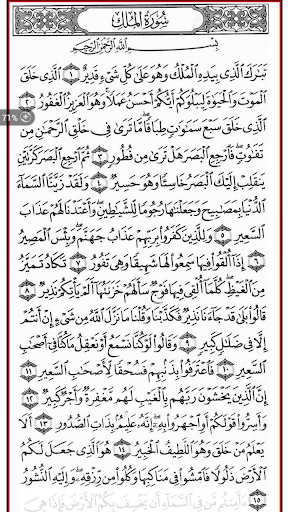 سُورَةُ الْمُلْكِ
بِسْمِ اللَّهِ الرَّحْمَٰنِ الرَّحِيمِ
تَبَارَكَ الَّذِي بِيَدِهِ الْمُلْكُ وَهُوَ عَلَىٰ كُلِّ شَيْءٍ قَدِيرٌ ١ الَّذِي خَلَقَ
الْمَوْتَ وَالْحَيَاةَ لِيَبْلُوَكُمْ أَيُّكُمْ أَحْسَنُ عَمَلًا وَهُوَ الْعَزِيزُ الْغَفُورُ
٢ الَّذِي خَلَقَ سَبْعَ سَمَاوَاتٍ طِبَاقًا مَّا تَرَىٰ فِي خَلْقِ الرَّحْمَٰنِ مِن
71%
تَفَاوُتٍ فَارْجِعِ الْبَصَرَ هَلْ تَرَىٰ مِن فُطُورٍ ٣ ثُمَّ ارْجِعِ الْبَصَرَ كَرَّتَيْنِ
يَنقَلِبْ إِلَيْكَ الْبَصَرُ خَاسِئًا وَهُوَ حَسِيرٌ ٤ وَلَقَدْ زَيَّنَّا السَّمَاءَ
الدُّنْيَا بِمَصَابِيحَ وَجَعَلْنَاهَا رُجُومًا لِّلشَّيَاطِينِ وَأَعْتَدْنَا لَهُمْ عَذَابَ
السَّعِيرِ ٥ وَلِلَّذِينَ كَفَرُوا بِرَبِّهِمْ عَذَابُ جَهَنَّمَ وَبِئْسَ الْمَصِيرُ
٦ إِذَا أُلْقُوا فِيهَا سَمِعُوا لَهَا شَهِيقًا وَهِيَ تَفُورُ ٧ تَكَادُ تَمَيَّزُ
مِنَ الْغَيْظِ كُلَّمَا أُلْقِيَ فِيهَا فَوْجٌ سَأَلَهُمْ خَزَنَتُهَا أَلَمْ يَأْتِكُمْ نَذِيرٌ ٨
قَالُوا بَلَىٰ قَدْ جَاءَنَا نَذِيرٌ فَكَذَّبْنَا وَقُلْنَا مَا نَزَّلَ اللَّهُ مِن شَيْءٍ إِنْ أَنتُمْ
إِلَّا فِي ضَلَالٍ كَبِيرٍ ٩ وَقَالُوا لَوْ كُنَّا نَسْمَعُ أَوْ نَعْقِلُ مَا كُنَّا فِي أَصْحَابِ
السَّعِيرِ ١٠ فَاعْتَرَفُوا بِذَنبِهِمْ فَسُحْقًا لِّأَصْحَابِ السَّعِيرِ ١١
إِنَّ الَّذِينَ يَخْشَوْنَ رَبَّهُم بِالْغَيْبِ لَهُم مَّغْفِرَةٌ وَأَجْرٌ كَبِيرٌ ١٢
وَأَسِرُّوا قَوْلَكُمْ أَوِ اجْهَرُوا بِهِ إِنَّهُ عَلِيمٌ بِذَاتِ الصُّدُورِ ١٣ أَلَا
يَعْلَمُ مَنْ خَلَقَ وَهُوَ اللَّطِيفُ الْخَبِيرُ ١٤ هُوَ الَّذِي جَعَلَ لَكُمُ
الْأَرْضَ ذَلُولًا فَامْشُوا فِي مَنَاكِبِهَا وَكُلُوا مِن رِّزْقِهِ وَإِلَيْهِ النُّشُورُ
١٥ ءَأَمِنتُم مَّن فِي السَّمَاءِ أَن يَخْسِفَ بِكُمُ الْأَرْضَ فَإِذَا هِيَ